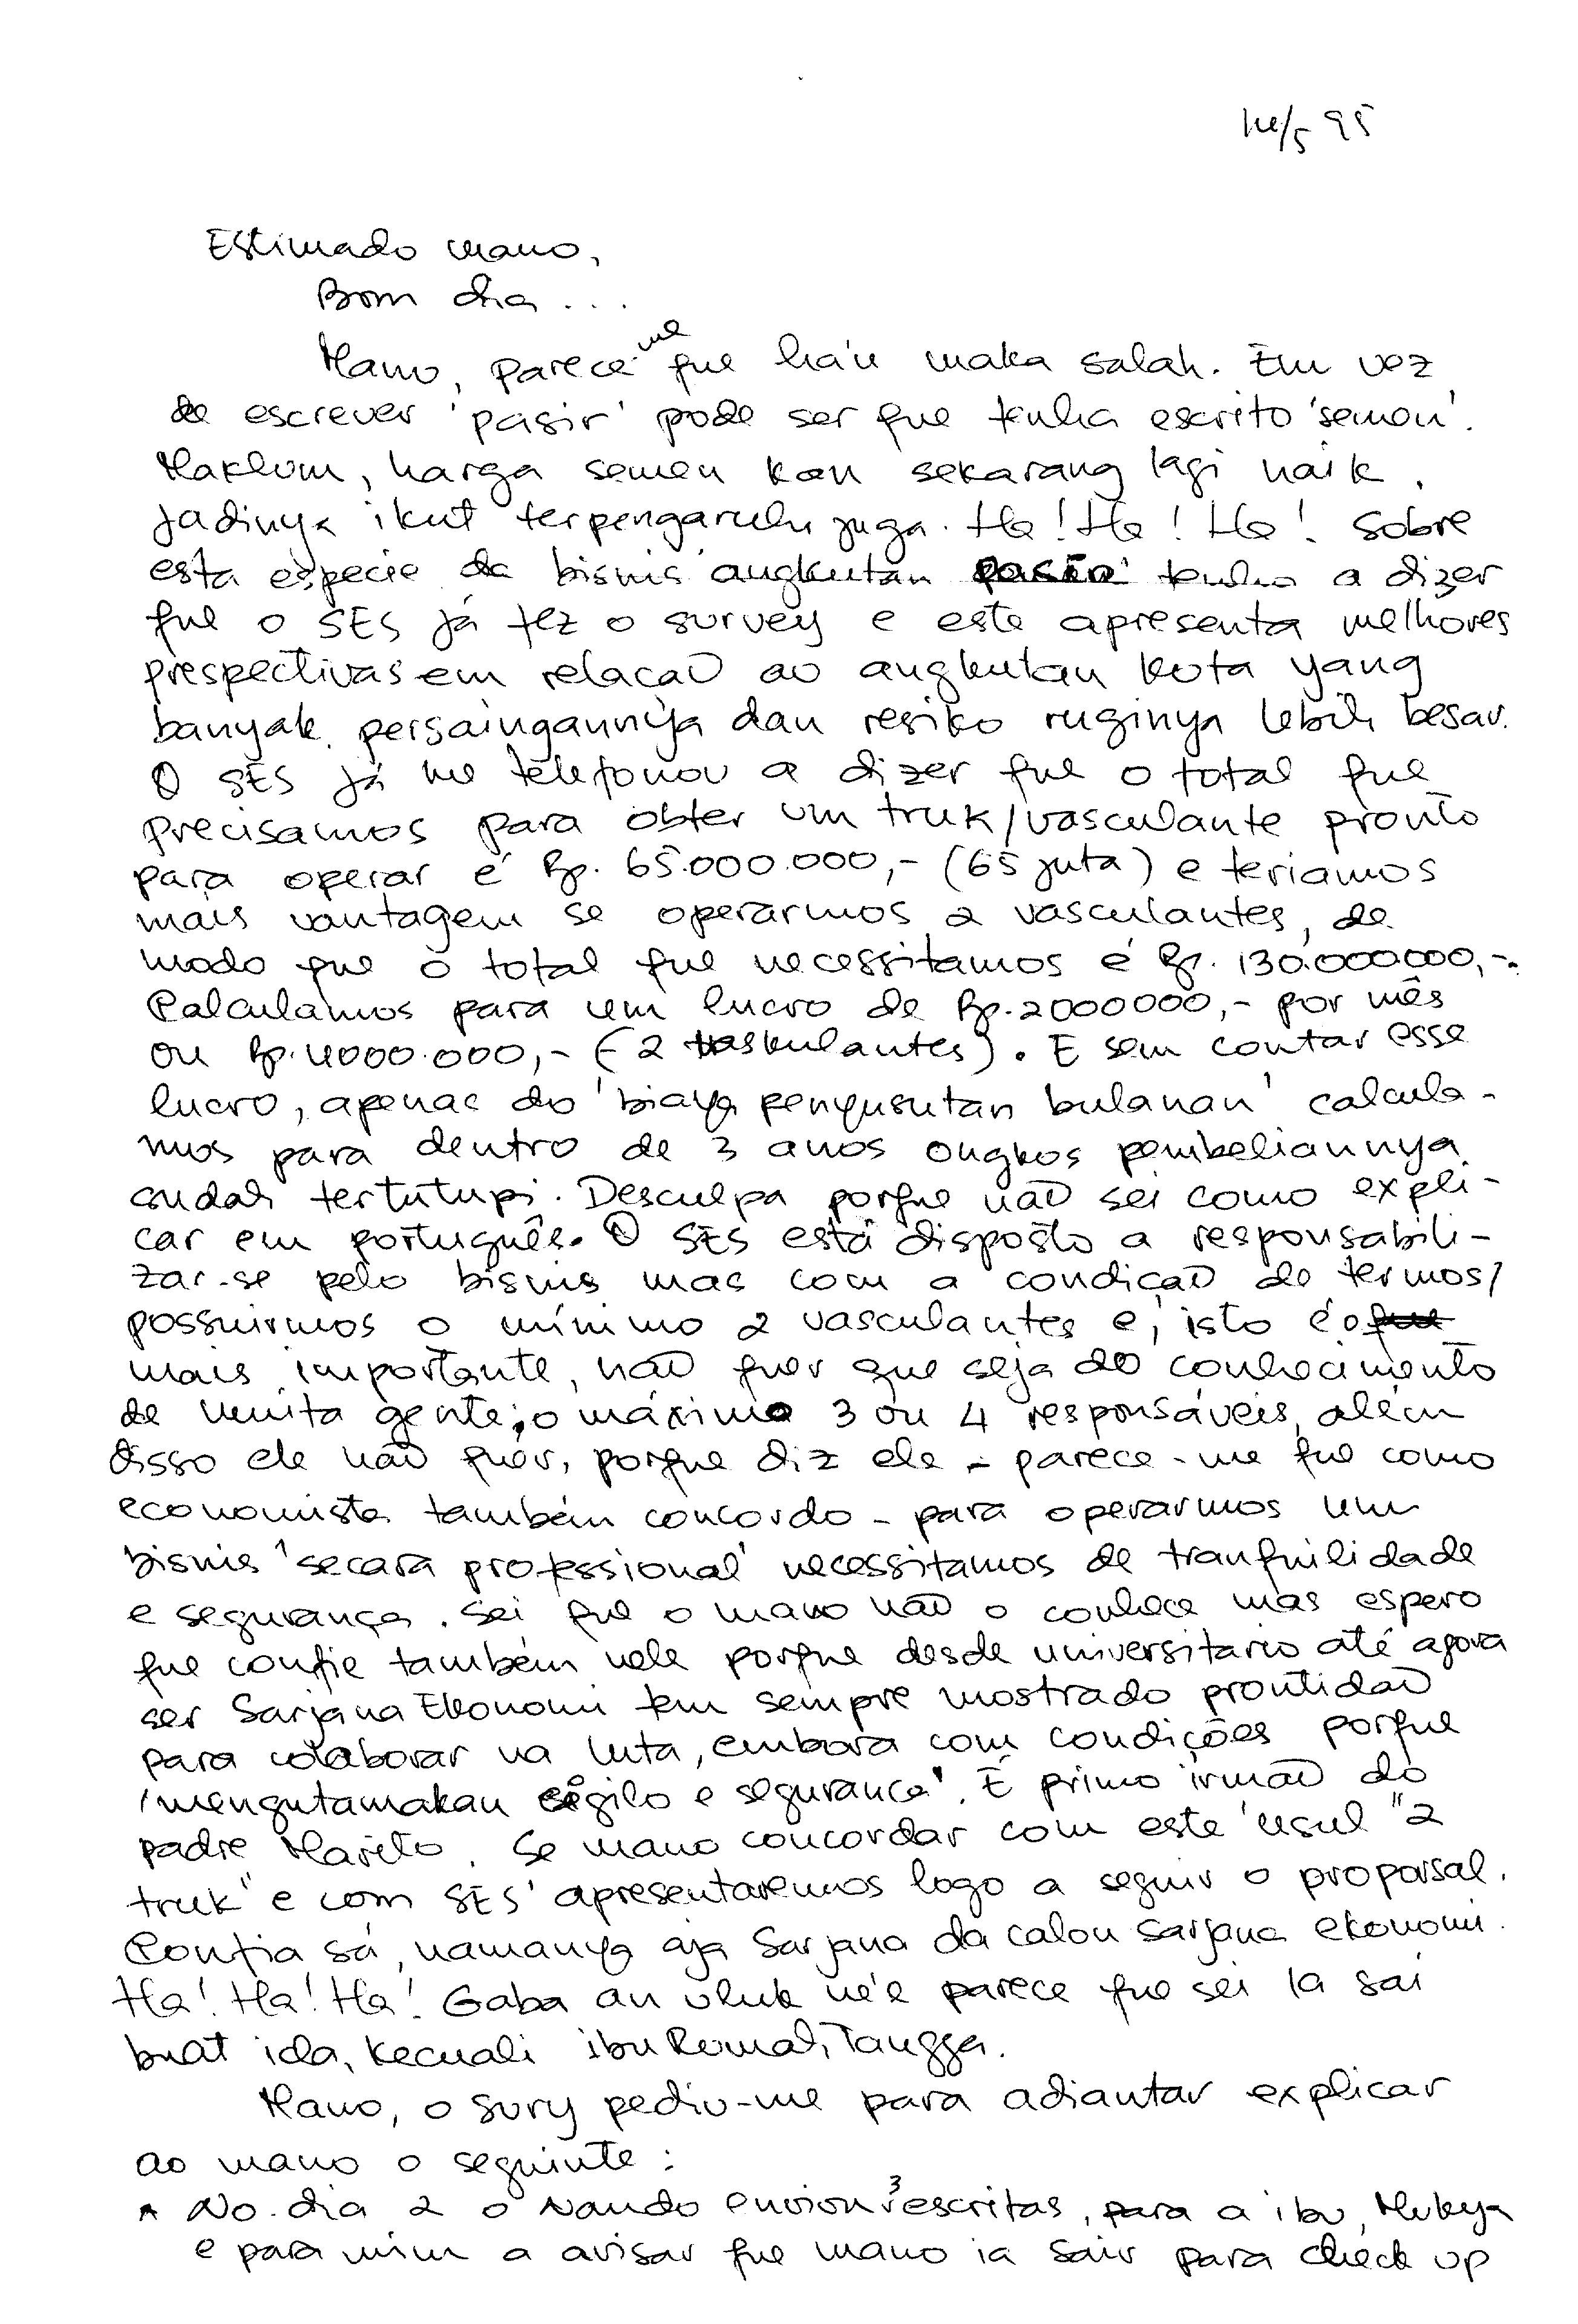 14/5 95
Estimado mano,
Bom dia...
Mano, parece me que ha'u maka salah. Em vez
de escrever 'pasir' pode ser que tenha escrito 'semen'.
Maklum, harga semen kan sekarang lagi naik,
jadinya ikut terpengaruh juga. Ha! Ha! Ha! Sobre
esta espécie de bisnis 'angkutan pasir' tenho a dizer
que o SES já fez o survey e este apresenta melhores
prespectivas em relação ao angkutan kota yang
banyak persaingannya dan resiko ruginya lebih besar.
O SES já me telefonou a dizer que o total que
precisamos para obter um truk/vasculante pronto
para operar é Rp. 65.000.000,- (65 juta) e teriamos
mais vantagem se operarmos 2 vasculantes, de
modo que o total que necessitamos é Rp. 130.000.000,-.
Calculamos para um lucro de Rp. 2000000,- por mês
ou Rp. 4000.000,- (2 vaskulantes). E sem contar esse
lucro, apenas do 'biaya penyusutan bulanan' calcula-
mos para dentro de 3 anos ongkos pembeliannya
sudah tertutupi. Desculpa porque não sei como expli-
car em português. O SES está disposto a responsabili-
zar-se pelo bisnis mas com a condição de termos/
possuirmos o mínimo 2 vasculantes e, isto é o
mais importante, não quer que seja do conhecimento
de muita gente; o máximo 3 ou 4 responsáveis, além
disso ele não quer, porque diz ele - parece-me que como
economista também concordo - para operarmos um
bisnis 'secara professional' necessitamos de tranquilidade
e segurança. Sei que o mano não o conhece mas espero
que confie também nele porque desde universitario até agora
ser Sarjana Ekonomi tem sempre mostrado prontidão
para colaborar na luta, embora com condições porque
'mengutamakan sigilo e segurança'. É primo irmão do
padre Marito. Se mano concordar com este 'usul "2
truk" e com SES' apresentaremos logo a seguir o proporsal.
Confia sá, namanya aja Sarjana da calon sarjana ekonomi.
Ha! Ha! Ha! Gaba an uluk ne'e parece que sei la sai
buat ida, kecuali ibu Rumah Tangga.
Mano, o Sury pediu-me para adiantar explicar
ao mano o seguinte:
* No dia 2 o Nando enviou 3 escritas, para a ibu, Mukya
e para mim a avisar que mano ia sair para check up